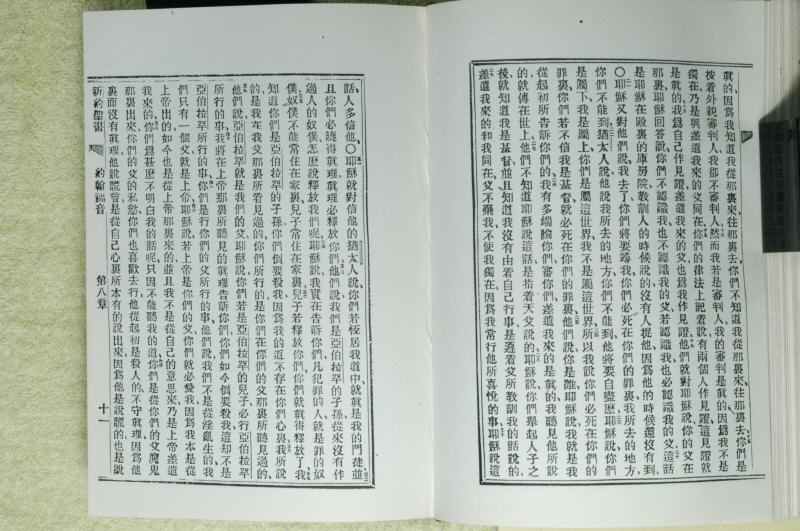 眞的因爲我知道我從那裏來往那裏去你們不知道我從那裏來往那裏去你們是
按着外貌審判人我卻不審判人然而我若是審判人我的審判是眞的因爲我不是
獨在乃是與差遣我來的父同在你們的律法上記着說有兩個人作見證這見證就
是眞的我爲自己作見證差遣我來的父也爲我作見證他們就對耶穌說你的父在
那裏耶穌回答說你們不認識我也不認識我的父若認識我也必認識我的父這話
是耶穌在殿裏的庫房院敎訓人的時候說的沒有人捉他因爲他的時候還沒有到
〇耶穌又對他們說我去了你們將要尋我你們必死在你們的罪裏我所去的地方
你們不能到猶太人說他說我所去的地方你們不能到他將要自盡麽耶穌說你們
是屬下我是屬上你們是屬這世界我不是屬這世界所以我說你們必死在你們的
罪裏你們若不信我是基督就必死在你們的罪裏他們說你是誰耶穌說我就是我
從起初所告訴你們的我有多端論你們審你們差遣我來的是眞的我聽見他所說
的就傳在世上他們不知道耶穌說這話是指着天父說的耶穌說你們舉起人子之
後就知道我是基督並且知道我沒有由着自己行事是遵着父所敎訓我的話說的
差遣我來的和我同在父不撇我不使我獨在因爲我常行他所喜悅的事耶穌說這
話人多信他〇耶穌就對信他的猶太人說你們若恆居我道中就就是我的門徒並
且你們必曉得眞理眞理必釋放你們他們說我們是亞伯拉罕的子孫從來沒有作
過人的奴僕怎麽說釋放我們呢耶穌說我實在告訴你們凡犯罪的人就是罪的奴
僕奴僕不能常住在家裏兒子常住在家裏兒子若釋放你們你們就眞得釋放了我
知道你們是亞伯拉罕的子孫你們倒要殺我因爲我的道不存在你們心裏我所說
的是我在我父那裏所看見過的你們所行的是你們在你們的父那裏所聽見過的
他們說亞伯拉罕就是我們的父耶穌說你們若是亞伯拉罕的兒子必行亞伯拉罕
所行的事我將在上帝那裏所聽見的眞理告訴你們你們如今倒要殺我這却不是
亞伯拉罕所行的事你們是行你們的父所行的事他們說我們不是從淫亂生的我
們只有一個父就是上帝耶穌說若上帝是你們的父你們就必愛我因爲我本是從
上帝出的如今也是從上帝那裏來的並且我不是從自己的意思來乃是上帝差遣
我來的你們爲甚麽不明白我的話呢只因不能聽我的道你們是從你們的父魔鬼
那裏出來你們的父的私慾你們也喜歡去行他從起初是殺人的不守眞理因爲他
裏面沒有眞理他說謊言是從自己心裏所本有的說出來因爲他是說謊的也是說
新約聖書 約翰福音 第八章 十一